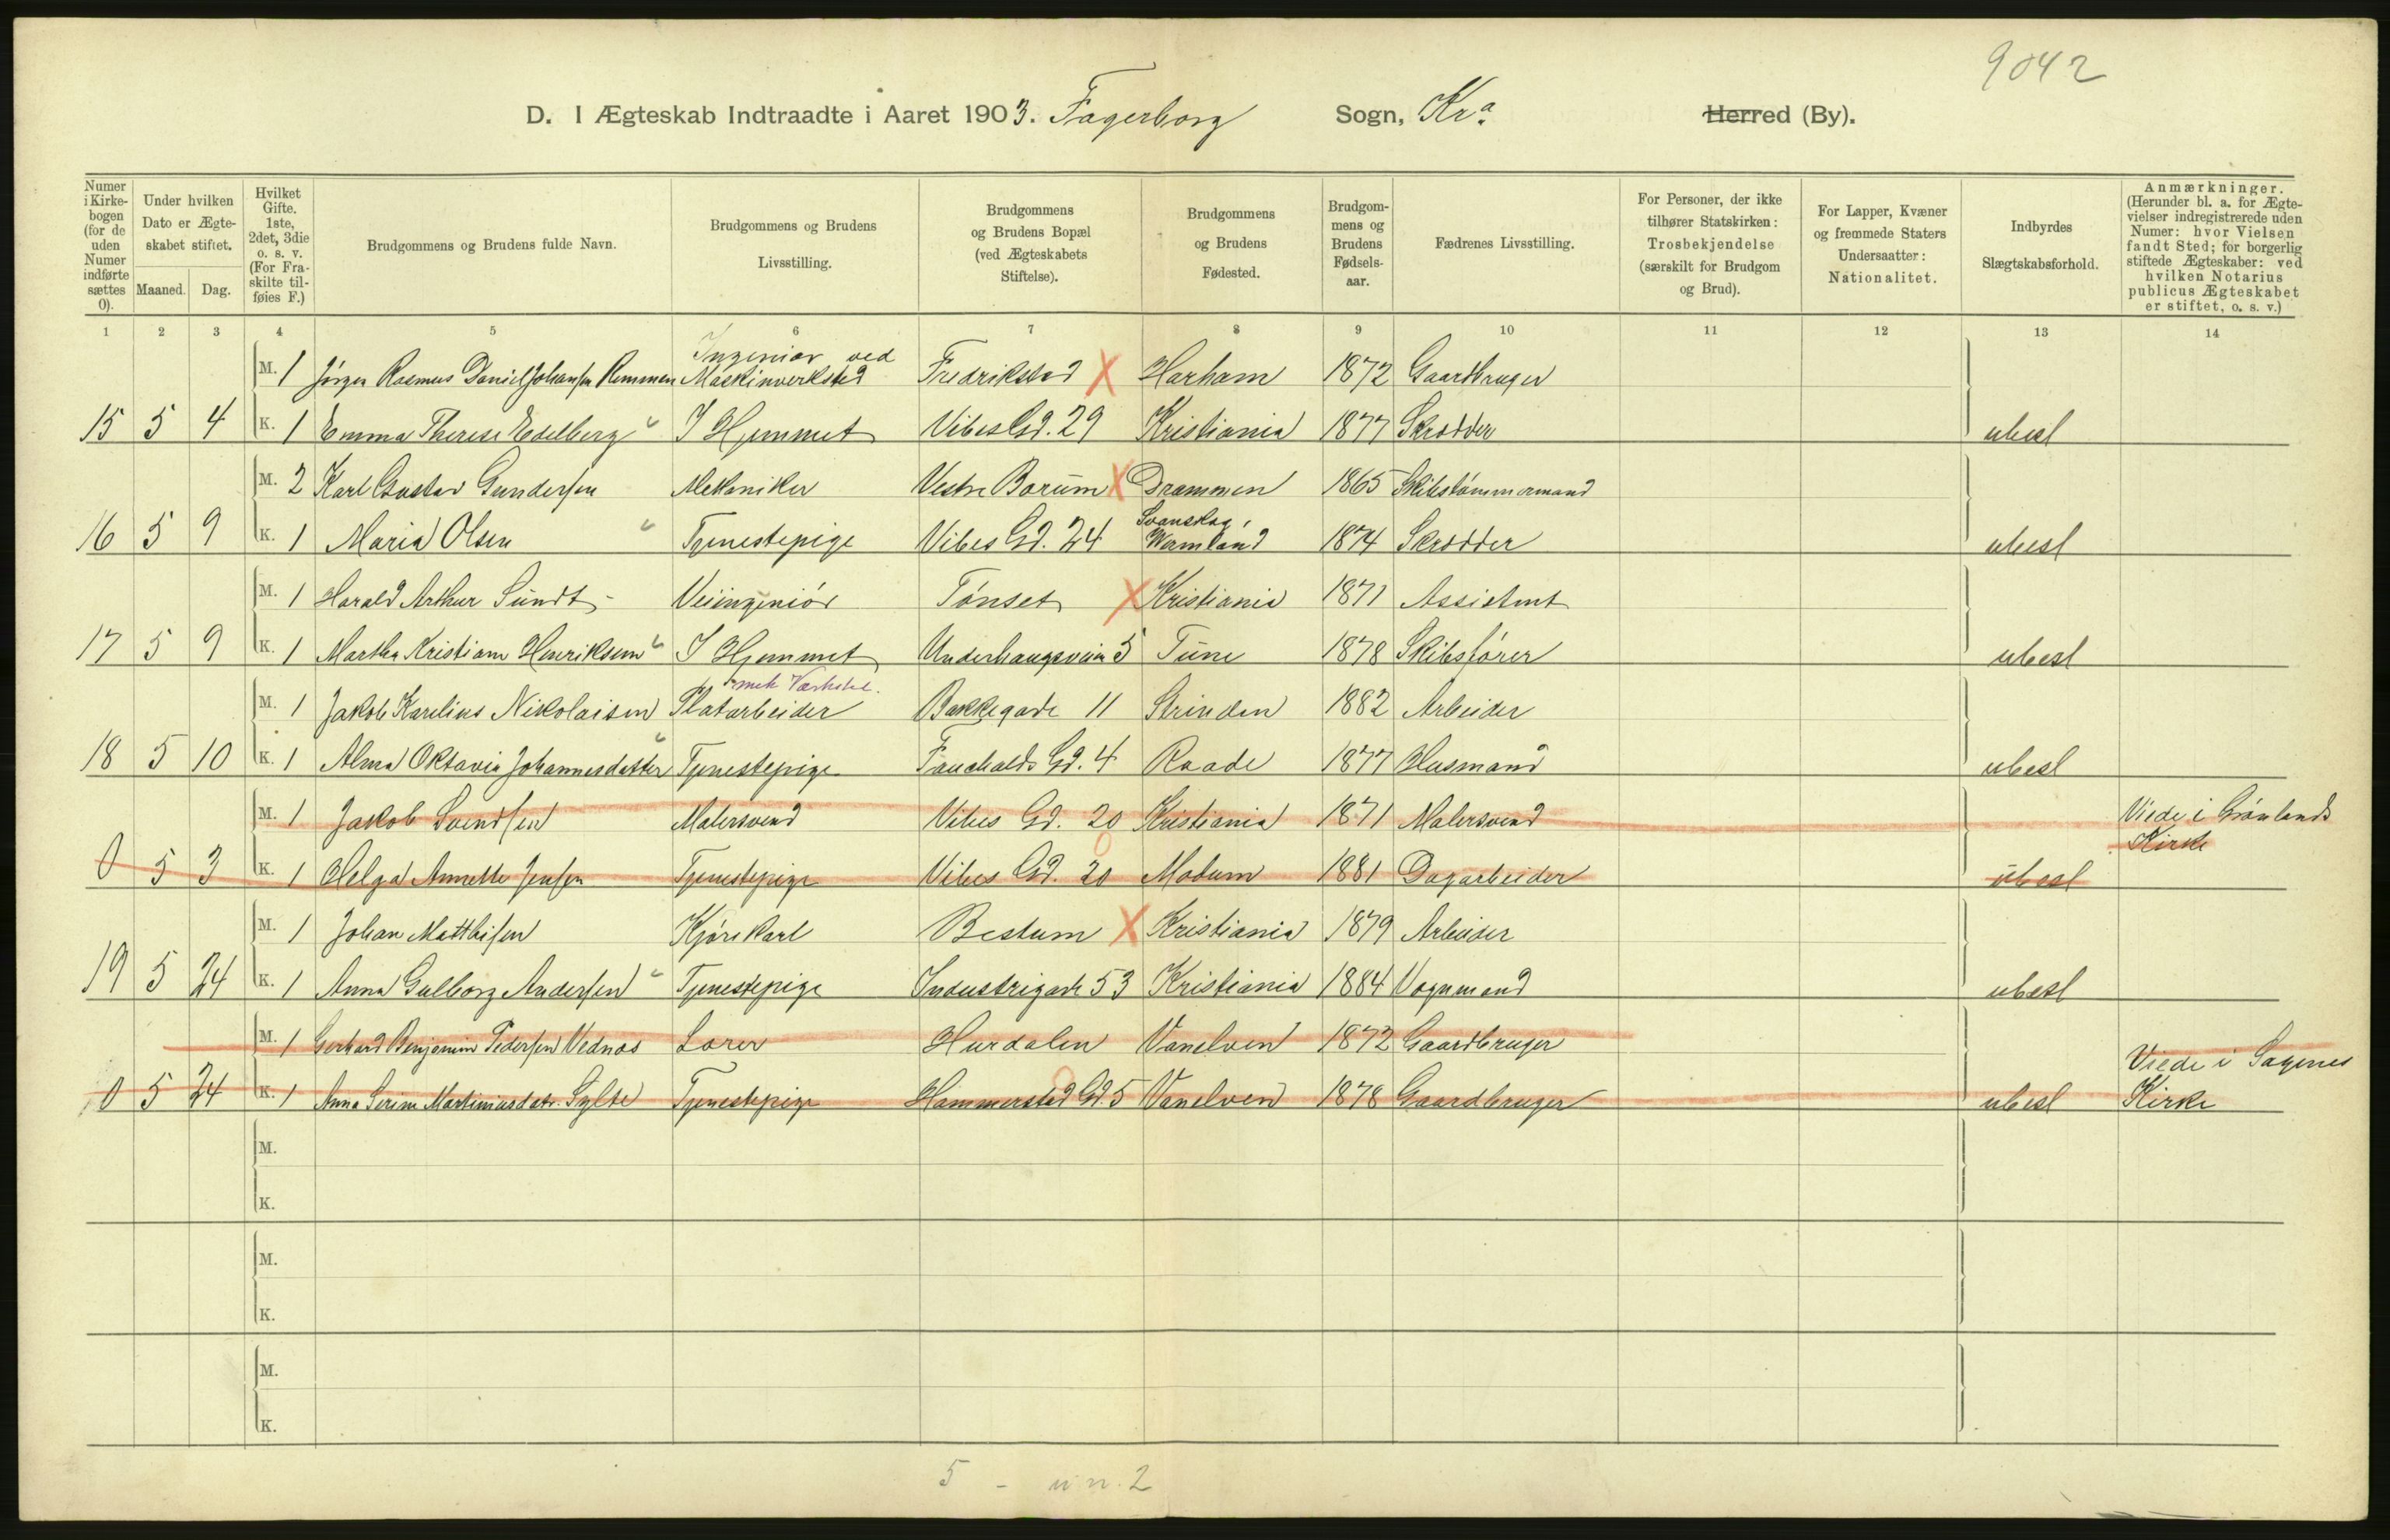 9042
D. I Ægteskab Indtraadte i Aaret 1903. Fagerborg Sogn, Kra. Herred (By).
Numer i Kirkebogen (for de uden Numer indførte sættes 0).
Under hvilken Dato er Ægteskabet stiftet.
Maaned. Dag.
Hvilket Gifte. 1ste, 2det, 3die o. s. v. (For Fraskilte tilføies F.)
Brudgommens og Brudens fulde Navn.
Brudgommens og Brudens Livsstilling.
Brudgommens og Brudens Bopæl (ved Ægteskabets Stiftelse).
Brudgommens og Brudens Fødested.
Brudgommens og Brudens Fødselsaar.
Fædrenes Livsstilling.
For Personer, der ikke tilhører Statskirken: Trosbekjendelse (særskilt for Brudgom og Brud).
For Lapper, Kvæner og fremmede Staters Undersaatter: Nationalitet.
Indbyrdes Slægtskabsforhold.
Anmærkninger. (Herunder bl. a. for Ægtevielser indregistrerede uden Numer: hvor Vielsen fandt Sted; for borgerlig stiftede Ægteskaber: ved hvilken Notarius publicus Ægteskabet er stiftet, o. s. v.)
1 2 3 4 5 6 7 8 9 10 11 12 13 14
Ingeniør ved
M. 1 Jörgen Rasmus Daniel Johansen Remmen Maskinverksted Fredrikstad X Harham 1872 Gaardbruger
15 5 4 K. 1 Emma Therese Edelberg I Hjemmet Vibes Gd. 29 Kristiania 1877 Skrædder ubesl
M. 2 Karl Gustav Gundersen Mekaniker Vestre Bærum X Drammen 1865 Skibstömmermand
Svanskog,
16 5 9 K. 1 Maria Olsen Tjenestepige Vibes Gd. 24 Wermland 1874 Skrædder ubesl
M. 1 Harald Arthur Sundt Veiingeniör Tönset X Kristiania 1871 Assistent
17 5 9 K. 1 Martha Kristiane Henriksen I Hjemmet Underhaugsveien 5 Tune 1878 Skibsförer ubesl
mek Værksted.
M. 1 Jakob Karelius Nikolaisen Platarbeider Bakkegade 11 Strinden 1882 Arbeider
18 5 10 K. 1 Alma Oktavia Johannesdatter Tjenestepige Fauchalds Gd. 4 Raade 1877 Husmand ubesl
M. 1 Jakob Svendsen Malersvend Vibes Gd. 20 Kristiania 1871 Malersvend Viede i Grønlands
Kirke
0 5 3 K. 1 Helga Annette Jensen Tjenestepige Vibes Gd. 20 Modum 1881 Dagarbeider ubesl
M. 1 Johan Matthisen Kjörekarl Bestum X Kristiania 1879 Arbeider
19 5 24 K. 1 Anna Gulborg Andersen Tjenestepige Industrigade 53 Kristiania 1884 Vognmand ubesl
M. 1 Gerhard Benjamin Pedersen Vednæs Lærer Hurdalen Vanelven 1872 Gaardbruger Viede i Sagenes
0 5 24 K. 1 Anna Serine Martiniusdatr. Sylte Tjenestepige Hammerstad Gd. 5 Vanelven 1878 Gaardbruger ubesl Kirke
M.
K.
M.
K.
M.
K.
5 - u n. 2